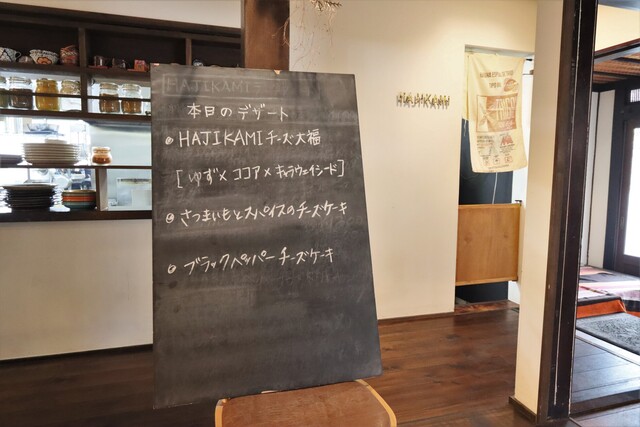 HAJIKAMI
本日のデザート
HAJIKAMIチーズ大福
[ゆず×ココア×キャラウェイシード]
さつまいもとスパイスのチーズケーキ
ブラックペッパーチーズケーキ
HAJIKAMI